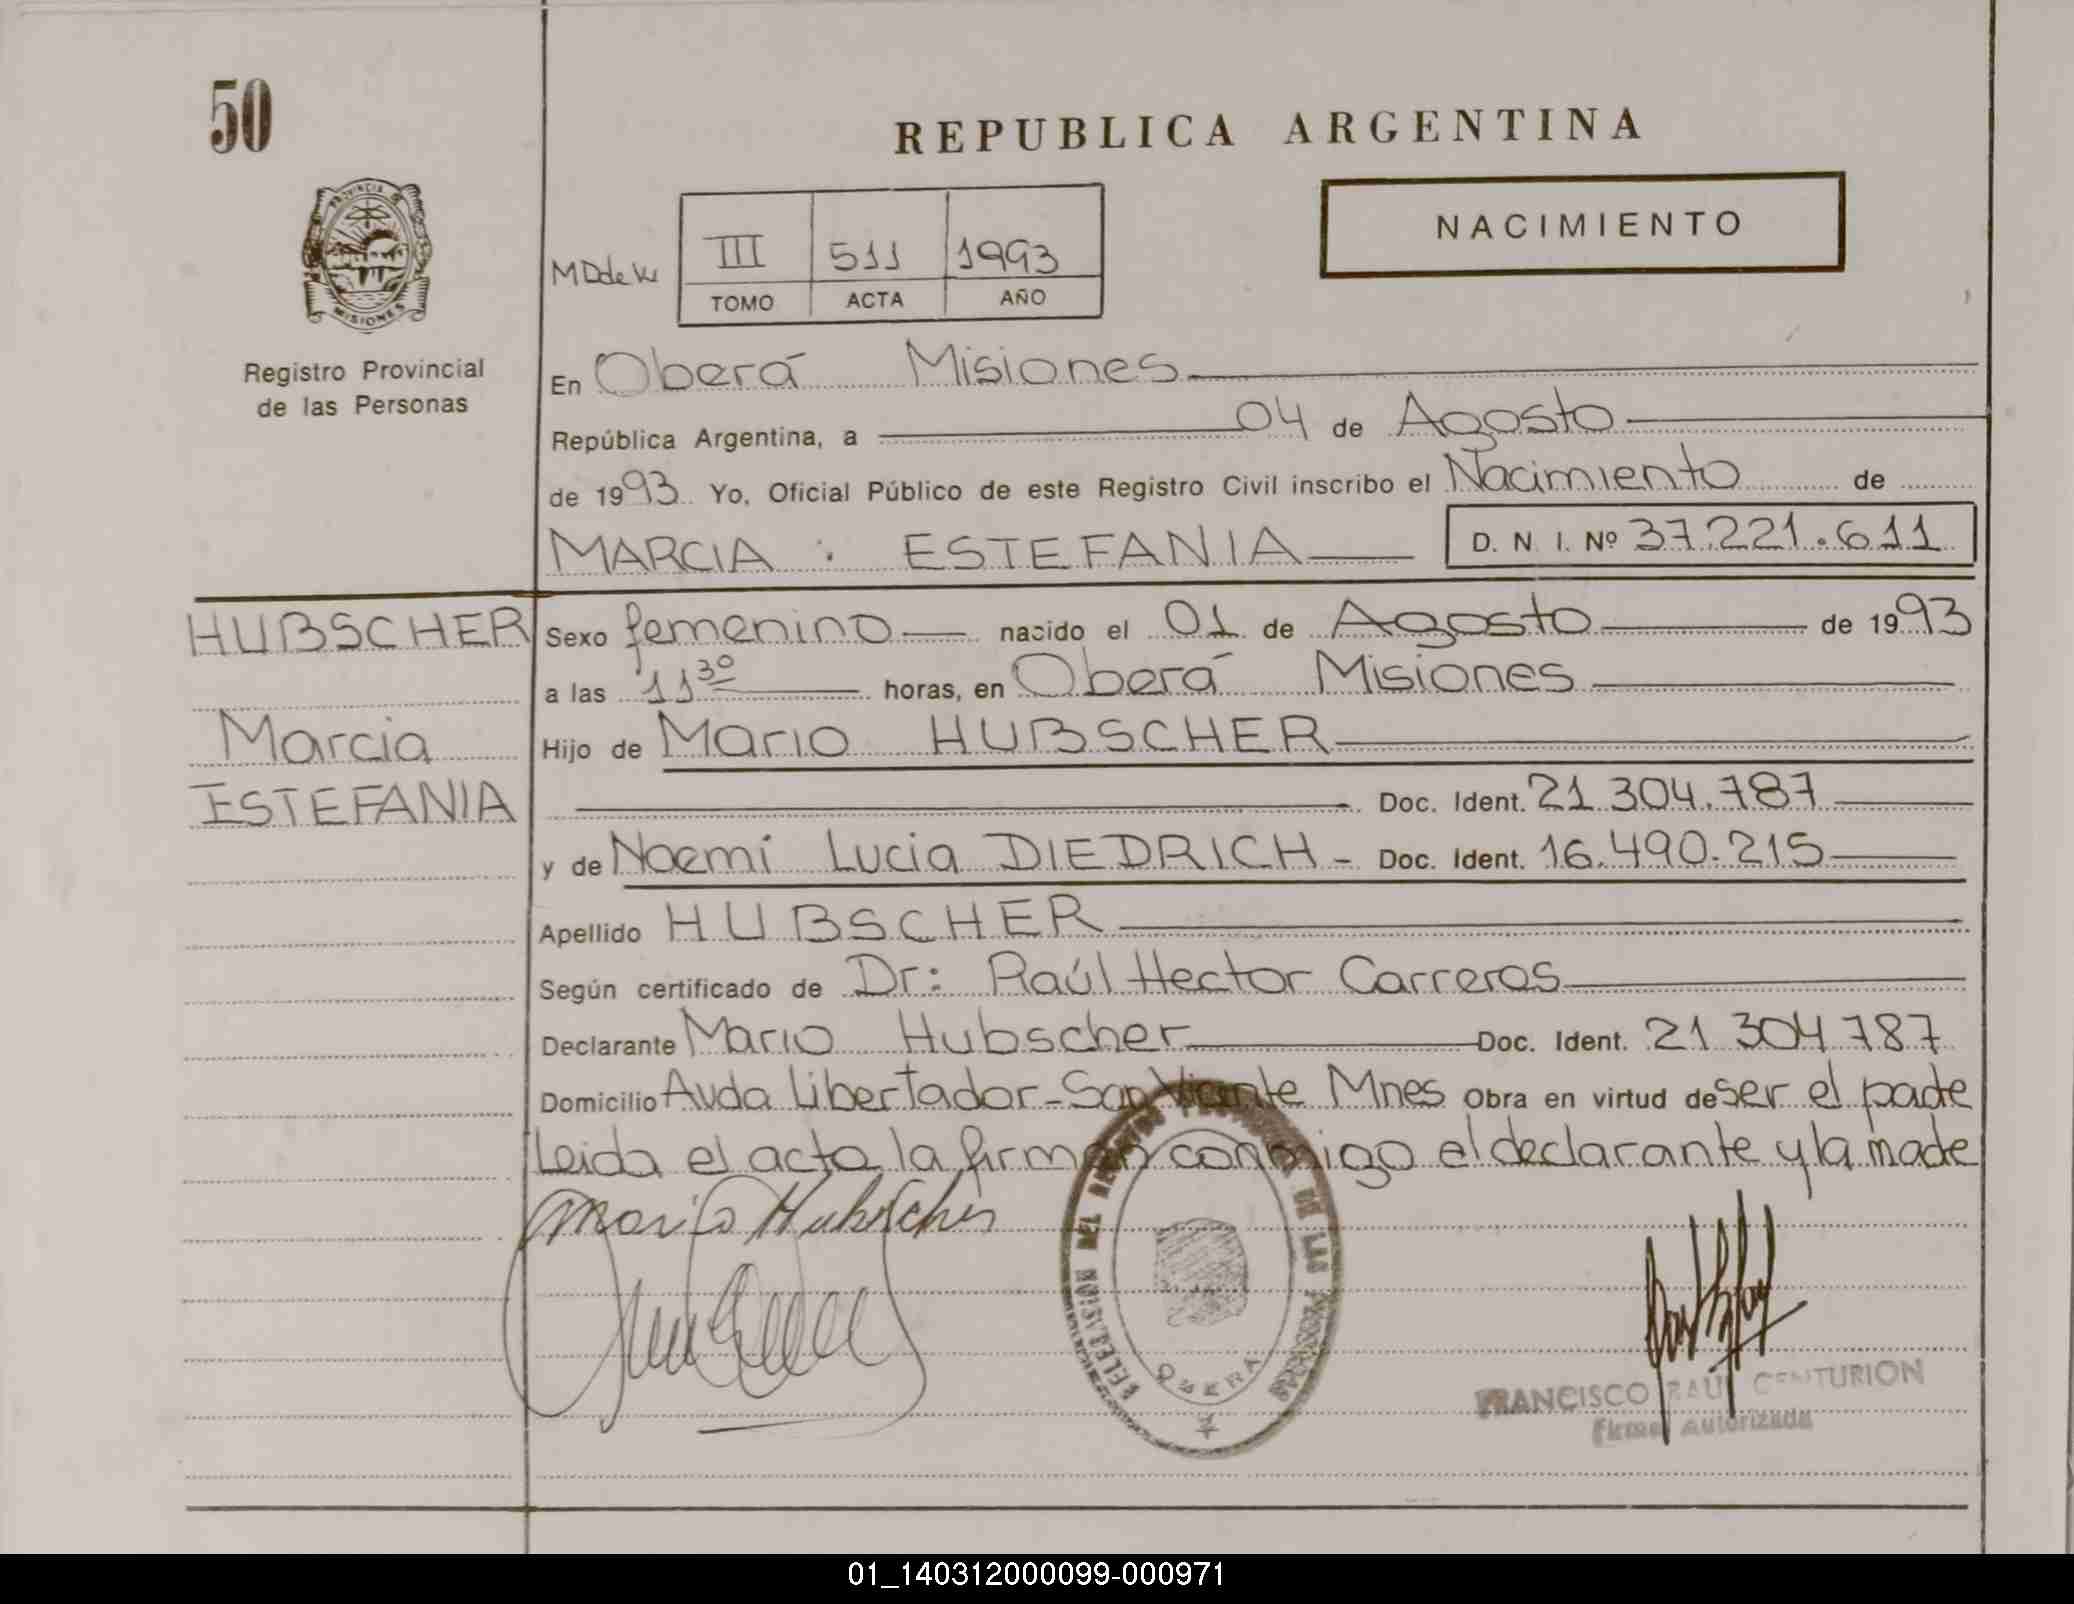 50
REPUBLICA ARGENTINA
NACIMIENTO
PROVINCIA DE
MISIONES
Registro Provincial
de las Personas
III 511 1993
TOMO ACTA AÑO
En Oberá Misiones
República Argentina, a 04 de Agosto
de 1993. Yo, Oficial Público de este Registro Civil inscribo el Nacimiento de
MARCIA ESTEFANIA D. N. I. Nº 37.221.611
HUBSCHER
Marcia
ESTEFANIA
Sexo femenino nacido el 01 de Agosto de 1993
a las 11 30 horas, en Oberá Misiones
Hijo de Mario HUBSCHER
Doc. Ident. 21.304.787
y de Noemi Lucia DIEDRICH - Doc. Ident. 16.490.215
Apellido HUBSCHER
Según certificado de Dr: Raúl Hector Carreros
Declarante Mario Hubscher Doc. Ident. 21.304.787
Domicilio Avda Libertador - San Vicente Mnes Obra en virtud de ser el padre
Leida el acta la firman conmigo el declarante y la madre
Mario Hubscher
DEL REGISTRO DE LAS PERSONAS
OBERA
FRANCISCO RAUL CENTURION
Firma Autorizada
01_140312000099-000971